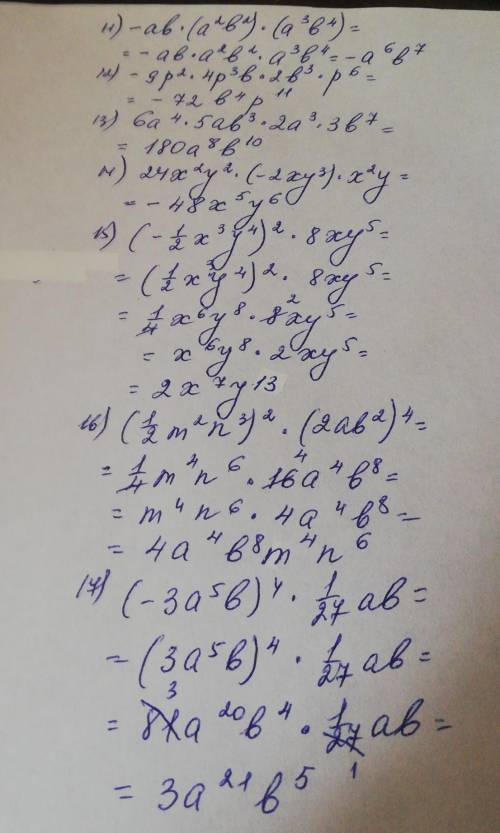 11) -ab·(a²b²)·(a³b⁴)=
= -ab·a²b²·a³b⁴=-a⁶b⁷
12) -9p²·4p³b·2b³·p⁶=
= -72b⁴p¹¹
13) 6a⁴·5ab³·2a³·3b⁷=
= 180a⁸b¹⁰
14) 24x²y²·(-2xy³)·x²y=
= -48x⁵y⁶
15) (-1/2x³y⁴)²·8xy⁵=
= (1/2x³y⁴)²·8xy⁵=
= 1/4x⁶y⁸·8²xy⁵=
= x⁶y⁸·2xy⁵=
= 2x⁷y13
16) (1/2m²n³)²·(2ab²)⁴=
= 1/4m⁴n⁶·16⁴a⁴b⁸=
= m⁴n⁶·4a⁴b⁸=
= 4a⁴b⁸m⁴n⁶
17) (-3a⁵b)⁴·1/27ab=
= (3a⁵b)⁴·1/27ab=
3
= 81a²⁰b⁴·1/27ab=
1
= 3a²¹b⁵